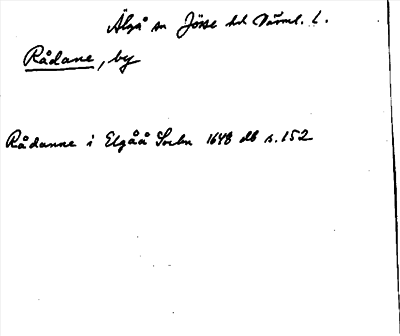 Älgå sn Jösse hd Värml. l.
Rådane, by
Rådanne i Elgåå Sochn 1648 db s. 152